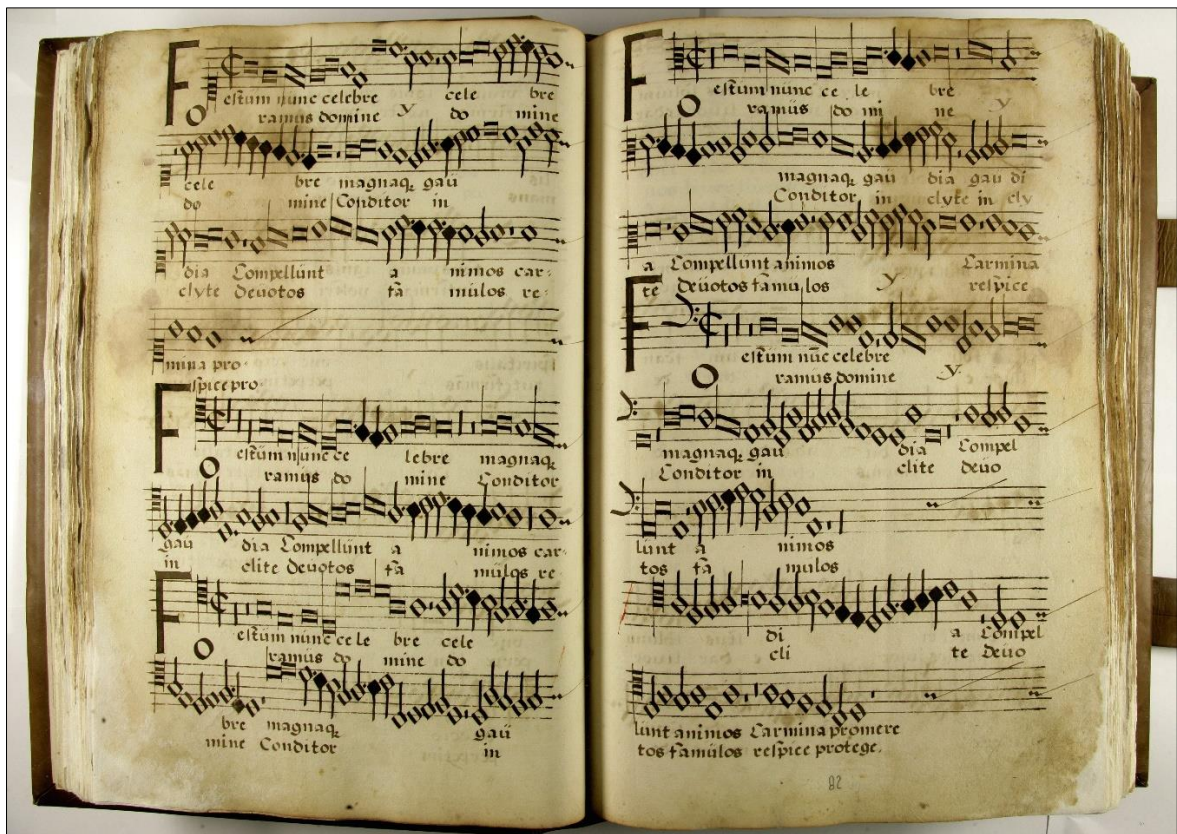 Festum nunc celebre y cele bre
Oramus domine y do mine
cele bre magnaq gau
do mine Conditor in
dia Compellunt a nimos car:
clyte devotos fa mulos re:
mina pro.
spice pro
Festum nunc ce lebre magnaq
Oramus do mine Conditor
gau dia Compellunt a nimos car:
in clite devotos fa mulos re
Festum nunc ce le bre cele
Oramus do mine do
bre magnaq gau
mine Conditor in
Festum nunc ce le bre
Oramus do mi ne y
magnaq gau dia gau di
Conditor in clyte in cly
a Compellunt animos y Carmina
te devotos famulos respice
Festum nuc celebre
Oramus domine y
magnaq gau dia Compel
Conditor in clite devo
lunt a nimos
tos fa mulos
di a Compel
cli te devo
lunt animos Carmina promere
tos famulos respice protege.
82